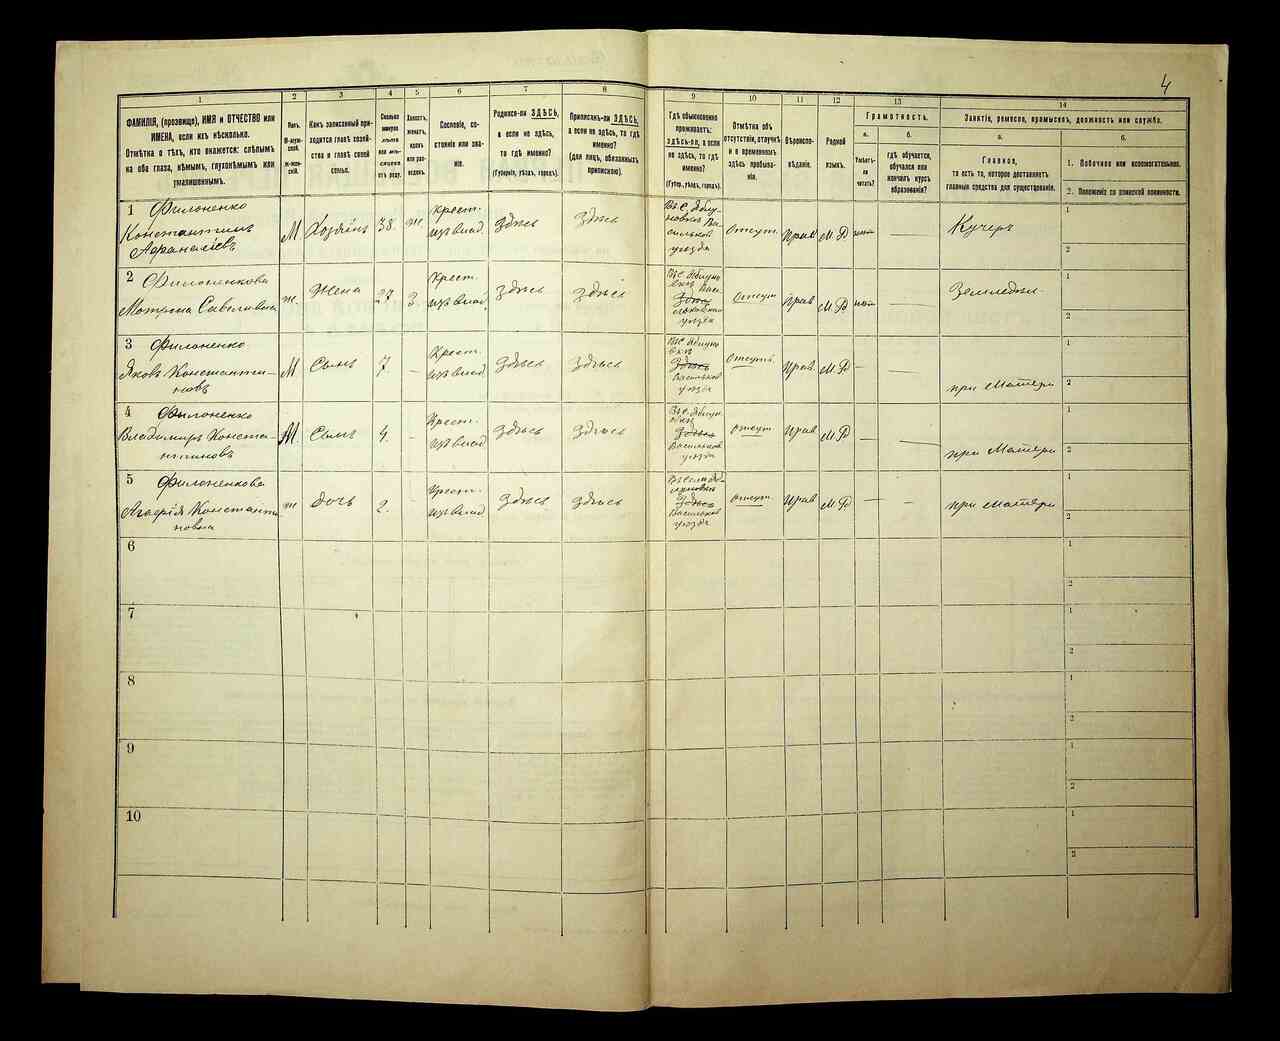 4
1
2
3
4
5
6
7
8
9
10
11
12
13
14
ФАМИЛІЯ, (прозвище), ИМЯ и ОТЧЕСТВО или
ИМЕНА, если ихъ нѣсколько.
Отмѣтка о тѣхъ, кто окажется: слѣпымъ
на оба глаза, нѣмымъ, глухонѣмымъ или
умалишеннымъ.
Полъ.
М-муж-
ской.
ж-жен-
скій.
Какъ записанный при-
ходится главѣ хозяй-
ства и главѣ своей
семьи.
Сколько
минуло
лѣтъ
или мѣ-
сяцевъ
отъ роду.
Холостъ,
женатъ,
вдовъ
или раз-
веденъ.
Сословіе, со-
стояніе или зва-
ніе.
Родился-ли ЗДѢСЬ,
а если не здѣсь,
то гдѣ именно?
(Губернія, уѣздъ, городъ).
Приписанъ-ли ЗДѢСЬ,
а если не здѣсь, то гдѣ
именно?
(для лицъ, обязанныхъ
припискою).
Гдѣ обыкновенно
проживаетъ:
здѣсь-ли, а если
не здѣсь, то гдѣ
именно?
(Губер., уѣздъ, городъ).
Отмѣтка объ
отсутствіи, отлучкѣ
и о временномъ
здѣсь пребыва-
ніи.
Вѣроиспо-
вѣданіе.
Родной
языкъ.
Грамотность.
а.
Умѣетъ-
ли
читать?
б.
гдѣ обучается,
обучался или
кончилъ курсъ
образованія?
Занятіе, ремесло, промыселъ, должность или служба.
а.
Главное,
то есть то, которое доставляетъ
главныя средства для существованія.
б.
1. Побочное или вспомогательное.
2. Положеніе по воинской повинности.
1 Филоненко
Константинъ
Афанасіевъ
М.
Хозяинъ
38.
ж.
Крест.
изъ влад.
здѣсь
здѣсь
Въ с. Яблу-
новкѣ Ва-
сильков
уѣзда
Отсут.
Прав.
М.Р.
Кучеръ
1
2
2 Филоненкова
Мотрона Савелиевна
ж.
Жена
27.
З.
Крест.
изъ влад.
здѣсь
здѣсь
Въ с. Яблуно
вкѣ Вас.
Здѣсь
уѣзда
Отсут
Прав
М.Р.
Земледѣл.
1
2
3 Филоненко
Яковъ Константи-
новъ
М
Сынъ
7.
-
Крест.
изъ влад
здѣсь
здѣсь
Въ с. Яблуно
вкѣ
Здѣсь
Васильков
уѣзда
Отсут.
Прав.
М.Р.
при Матери
1
2
4 Филоненко
Владимиръ Конста-
нтиновъ
М.
Сынъ
4.
-
Крест.
изъ влад
здѣсь
здѣсь
Въ с. Яблун
овкѣ
Здѣсь
Васильков
уѣзда
отсут
Прав
М.Р.
при Матери
1
2
5 Филоненкова
Агафія Константи
новна
ж
дочь
2.
Крест.
изъ влад
здѣсь
здѣсь
Здѣсь
Васильков
уѣзда
отсут.
Прав
М.Р.
при Матери
1
2
6
1
2
7
1
2
8
1
2
9
1
2
10
1
2